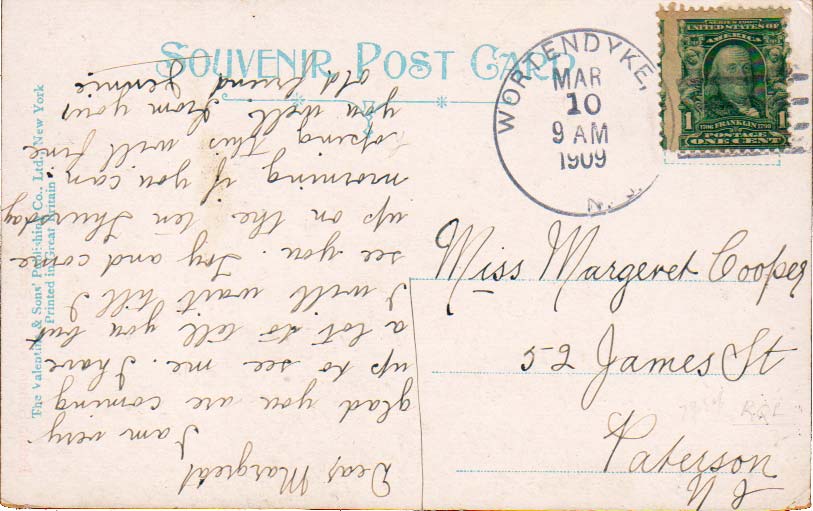 SOUVENIR POST CARD
WORTENDYKE,
MAR
10
9 AM
1909
N. J.
SERIES 1902
UNITED STATES OF
AMERICA
1706 FRANKLIN 1790
1 POSTAGE 1
ONE CENT
Miss Margeret Cooper
52 James St
Paterson
N J
Dear Margreat
I am very
glad you are coming
up to see me. I have
a lot to tell you but
I will wait till I
see you. Try and come
up on the ten Thursday
morning if you can
hoping this will find
you well. From your
old friend Jennie
The Valentine & Sons' Publishing Co., Ltd., New York
Printed in Great Britain